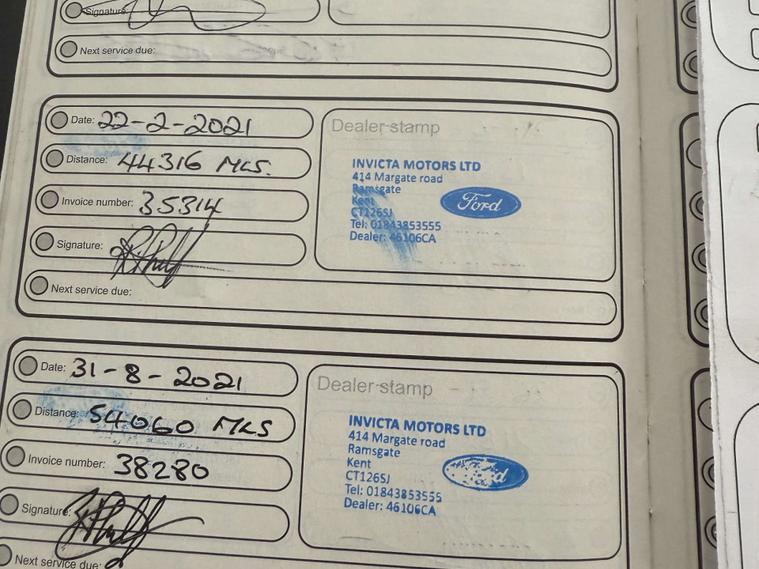 Signature:
Next service due:
Date: 22-2-2021
Distance: 44316 MLS.
Invoice number: 35314
Signature:
Next service due:
Dealer stamp
INVICTA MOTORS LTD
414 Margate road
Ramsgate
Kent
CT126SJ
Tel: 01843853555
Dealer: 46106CA
Ford
Date: 31-8-2021
Distance: 54060 MLS
Invoice number: 38280
Signature:
Next service due:
Dealer stamp
INVICTA MOTORS LTD
414 Margate road
Ramsgate
Kent
CT126SJ
Tel: 01843853555
Dealer: 46106CA
Ford